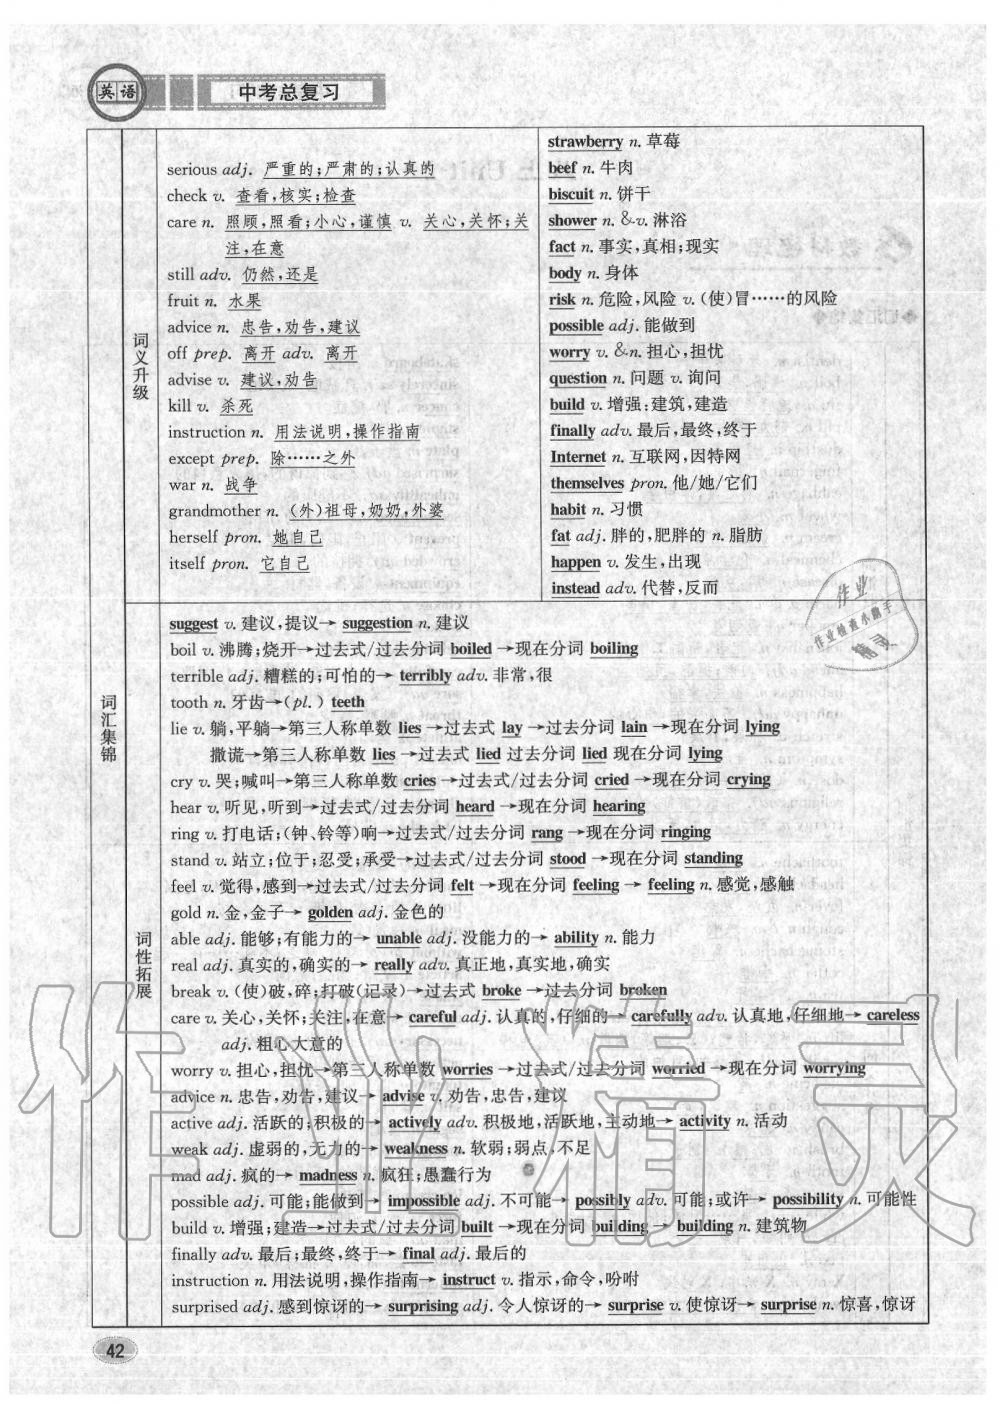 英语
中考总复习
词汇集锦
词义升级
serious adj. 严重的;严肃的;认真的
check v. 查看,核实;检查
care n. 照顾,照看;小心,谨慎 v. 关心,关怀;关
注,在意
still adv. 仍然,还是
fruit n. 水果
advice n. 忠告,劝告,建议
off prep. 离开 adv. 离开
advise v. 建议,劝告
kill v. 杀死
instruction n. 用法说明,操作指南
except prep. 除……之外
war n. 战争
grandmother n. (外)祖母,奶奶,外婆
herself pron. 她自己
itself pron. 它自己
strawberry n. 草莓
beef n. 牛肉
biscuit n. 饼干
shower n. &v. 淋浴
fact n. 事实,真相;现实
body n. 身体
risk n. 危险,风险 v. (使)冒……的风险
possible adj. 能做到
worry v. &n. 担心,担忧
question n. 问题 v. 询问
build v. 增强;建筑,建造
finally adv. 最后,最终,终于
Internet n. 互联网,因特网
themselves pron. 他/她/它们
habit n. 习惯
fat adj. 胖的,肥胖的 n. 脂肪
happen v. 发生,出现
instead adv. 代替,反而
词性拓展
suggest v. 建议,提议→ suggestion n. 建议
boil v. 沸腾;烧开→过去式/过去分词 boiled →现在分词 boiling
terrible adj. 糟糕的;可怕的→ terribly adv. 非常,很
tooth n. 牙齿→(pl. ) teeth
lie v. 躺,平躺→第三人称单数 lies →过去式 lay →过去分词 lain →现在分词 lying
撒谎→第三人称单数 lies →过去式 lied 过去分词 lied 现在分词 lying
cry v. 哭;喊叫→第三人称单数 cries →过去式/过去分词 cried →现在分词 crying
hear v. 听见,听到→过去式/过去分词 heard →现在分词 hearing
ring v. 打电话;(钟、铃等)响→过去式/过去分词 rang →现在分词 ringing
stand v. 站立;位于;忍受;承受→过去式/过去分词 stood →现在分词 standing
feel v. 觉得,感到→过去式/过去分词 felt →现在分词 feeling → feeling n. 感觉,感触
gold n. 金,金子→ golden adj. 金色的
able adj. 能够;有能力的→ unable adj. 没能力的→ ability n. 能力
real adj. 真实的,确实的→ really adv. 真正地,真实地,确实
break v. (使)破,碎;打破(记录)→过去式 broke →过去分词 broken
care v. 关心,关怀;关注,在意→ careful adj. 认真的,仔细的→ carefully adv. 认真地,仔细地→ careless
adj. 粗心大意的
worry v. 担心,担忧→第三人称单数 worries →过去式/过去分词 worried →现在分词 worrying
advice n. 忠告,劝告,建议→ advise v. 劝告,忠告,建议
active adj. 活跃的;积极的→ actively adv. 积极地,活跃地,主动地→ activity n. 活动
weak adj. 虚弱的,无力的→ weakness n. 软弱;弱点,不足
mad adj. 疯的→ madness n. 疯狂;愚蠢行为
possible adj. 可能;能做到→ impossible adj. 不可能→ possibly adv. 可能;或许→ possibility n. 可能性
build v. 增强;建造→过去式/过去分词 built →现在分词 building → building n. 建筑物
finally adv. 最后;最终,终于→ final adj. 最后的
instruction n. 用法说明,操作指南→ instruct v. 指示,命令,吩咐
surprised adj. 感到惊讶的→ surprising adj. 令人惊讶的→ surprise v. 使惊讶→ surprise n. 惊喜,惊讶
42
作业
作业检查小助手
精灵
作业精灵